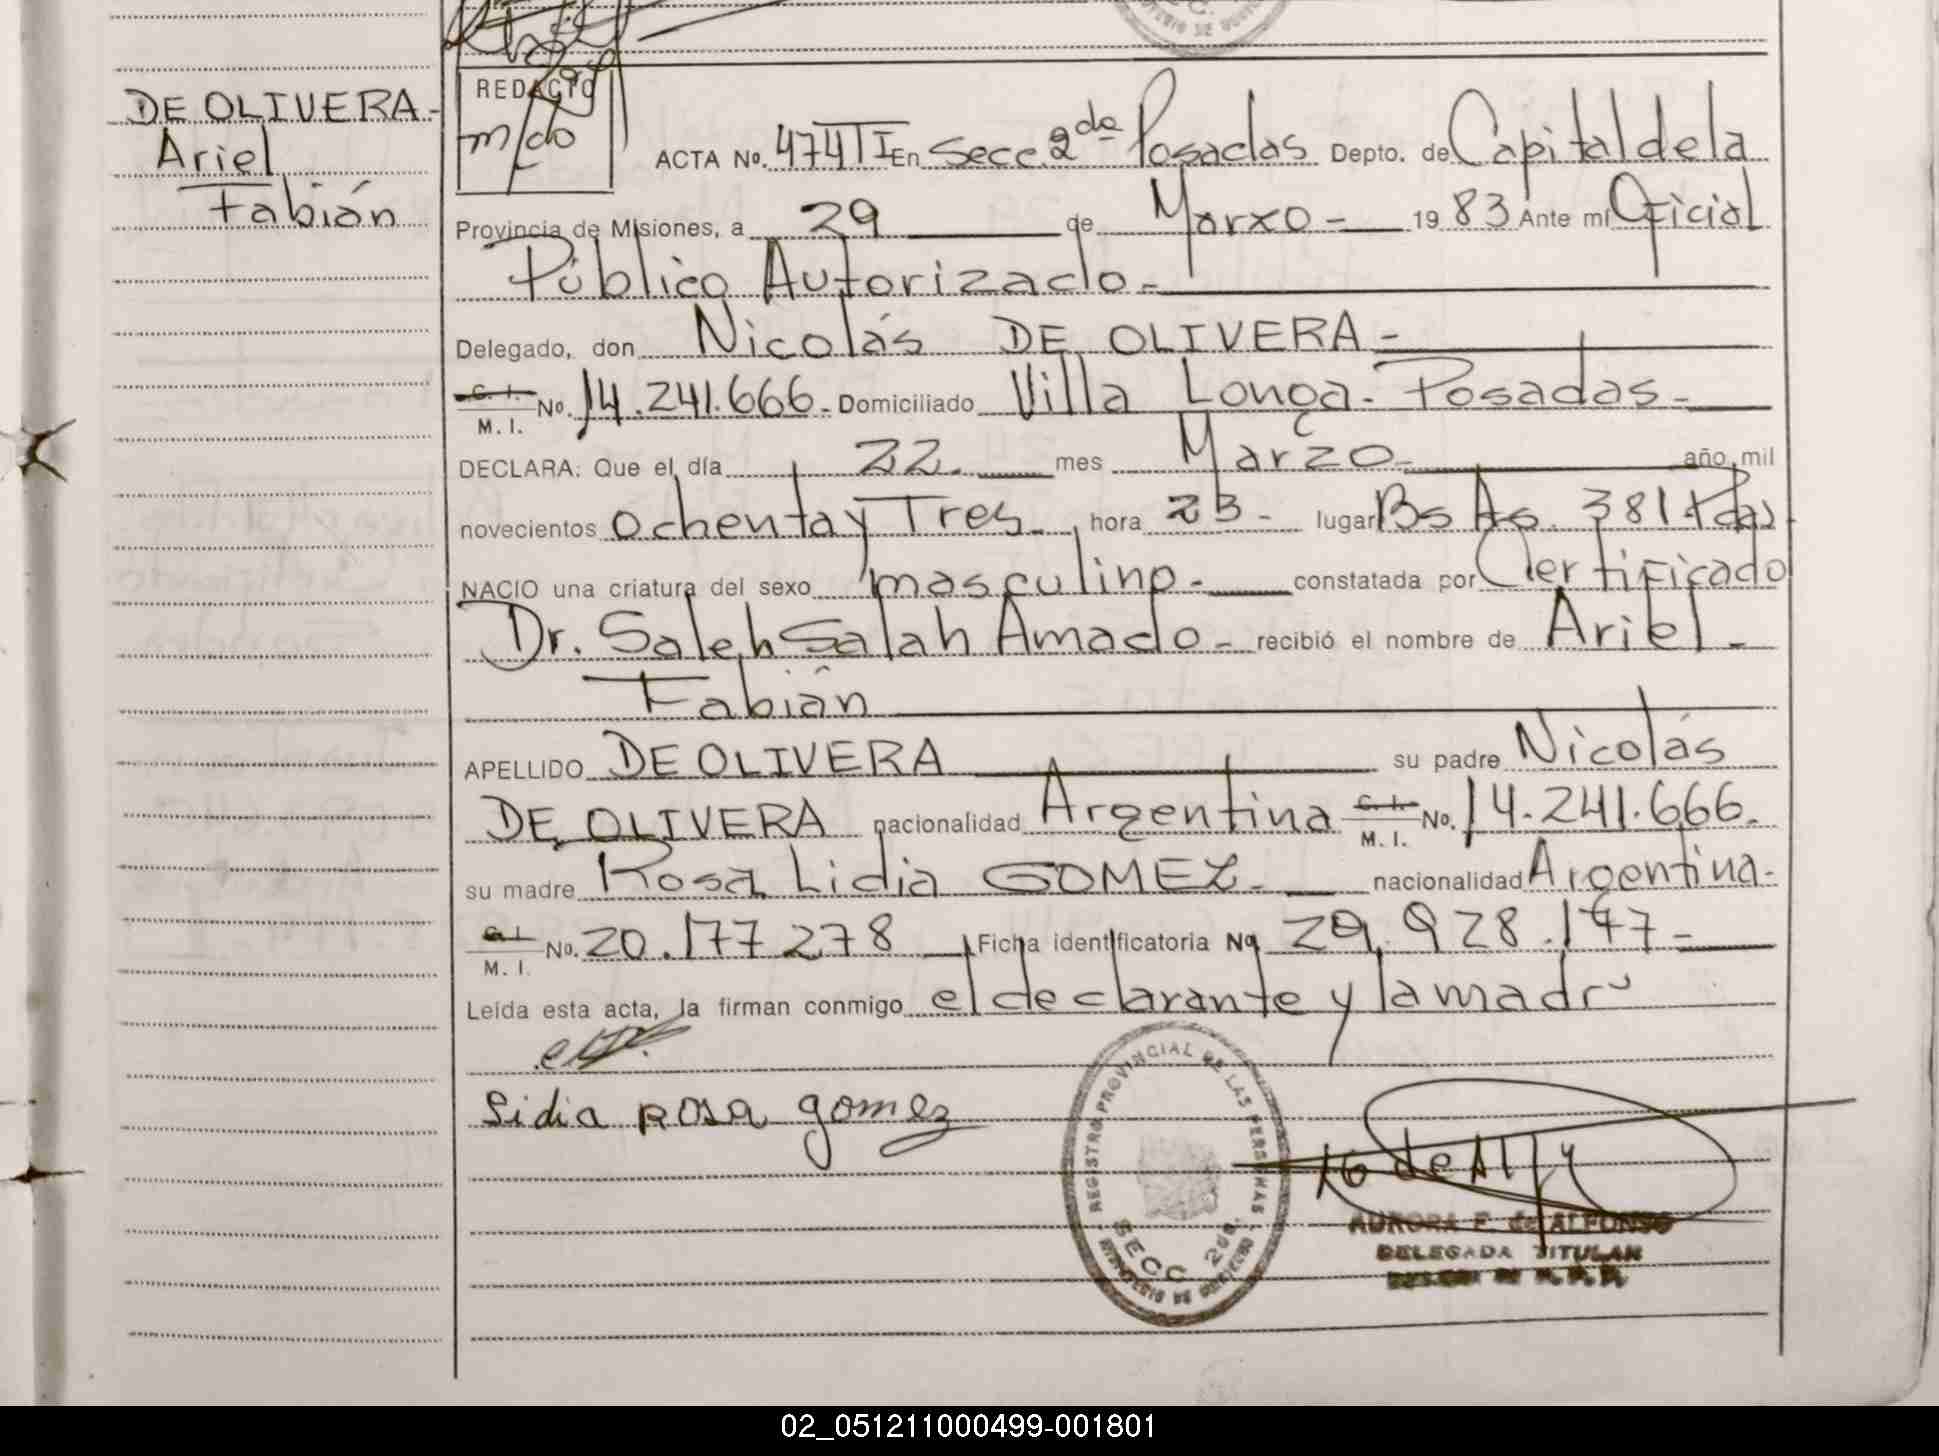 DE OLIVERA.-
Ariel
Fabián
REDACTO
m/do
ACTA No. 474 TI En Secc. 2da Posadas Depto. de Capital de la
Provincia de Misiones, a 29 de Marxo - 1983 Ante mí Oficial
Público Autorizado.-
Delegado, don Nicolás DE OLIVERA -
C. I. M. I. No. 14.241.666.- Domiciliado Villa Longa.- Posadas.-
DECLARA: Que el día 22. mes Marzo.- año mil
novecientos ochenta y Tres.- hora 23.- lugar Bs As. 381 Pdas.
NACIO una criatura del sexo masculino.- constatada por Certificado
Dr. Saleh Salah Amado.- recibió el nombre de Ariel.-
Fabián
APELLIDO DE OLIVERA su padre Nicolás
DE OLIVERA nacionalidad Argentina C. I. M. I. No. 14.241.666.
su madre Rosa Lidia GOMEZ.- nacionalidad Argentina.-
C. I. M. I. No. 20.177.278 Ficha identificatoria No 29.928.147-
Leída esta acta, la firman conmigo el declarante y la madre
Lidia Rosa gomez
REGISTRO PROVINCIAL DE LAS PERSONAS
SECC. 2da.
MINISTERIO DE GOBIERNO
AURORA F. de ALFONSO
DELEGADA TITULAR
02_051211000499-001801